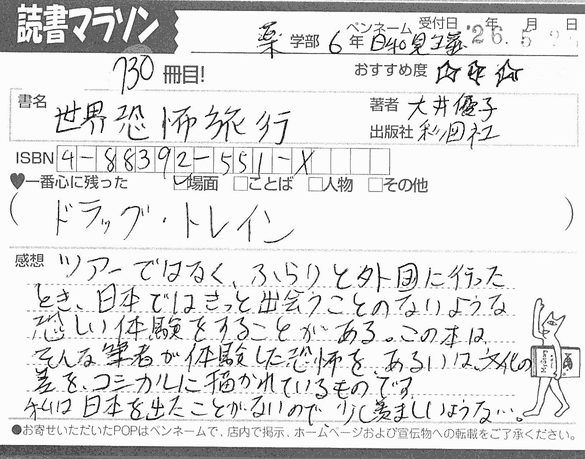 読書マラソン
薬 学部 6年 ペンネーム 日和見主義 受付日 '26. 5. 2 年 月 日
730 冊目! おすすめ度 ☆☆☆
書名 世界恐怖旅行
著者 大井優子
出版社 彩図社
ISBN 4-88392-551-X
♥一番心に残った ☑場面 □ことば □人物 □その他
(ドラッグ・トレイン)
感想 ツアーではなく、ふらりと外国に行った
とき、日本ではきっと出会うことのないような
恐しい体験をすることがある。この本は
そんな筆者が体験した恐怖を、あるいは、文化の
差を、コミカルに描かれているものです
私は日本を出たことがないので、少し羨ましいような…。
●お寄せいただいたPOPはペンネームで、店内で掲示、ホームページおよび宣伝物への転載をご了承ください。